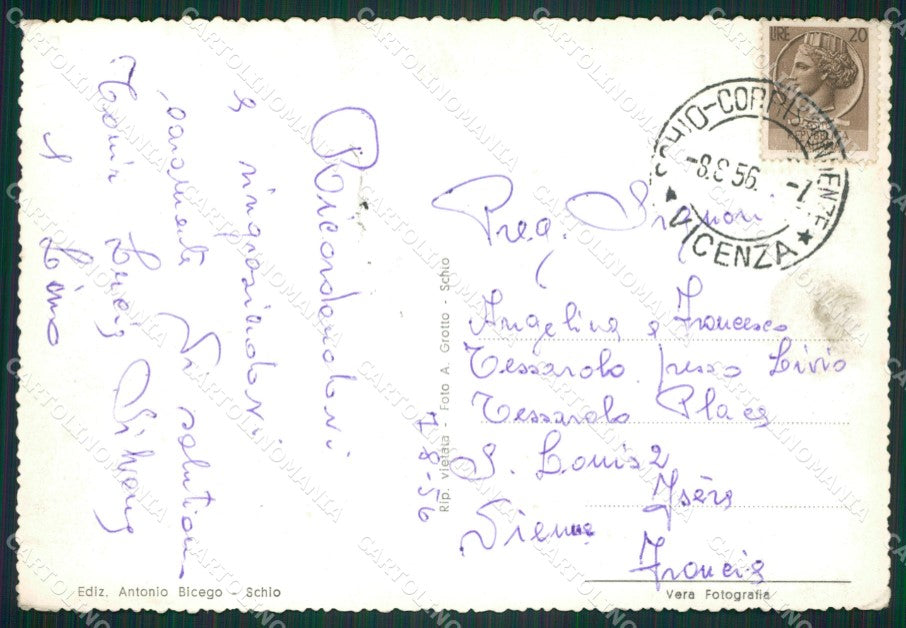 Ricordandovi
e ringraziandovi
caramente Vi salutiamo
Tonia Lucia Silvana
e Lino
7-8-56
Preg. Signori
Angelina e Francesco
Tessarolo presso Livio
Tessarolo Place
S. Louis 2
Isère
Vienne
Francia
LIRE 20
SCHIO-CORRISPONDENZE
-8.8.56.
VICENZA
Rip. vietata - Foto A. Grotto - Schio
Ediz. Antonio Bicego - Schio
Vera Fotografia
CARTOLINOMANIA